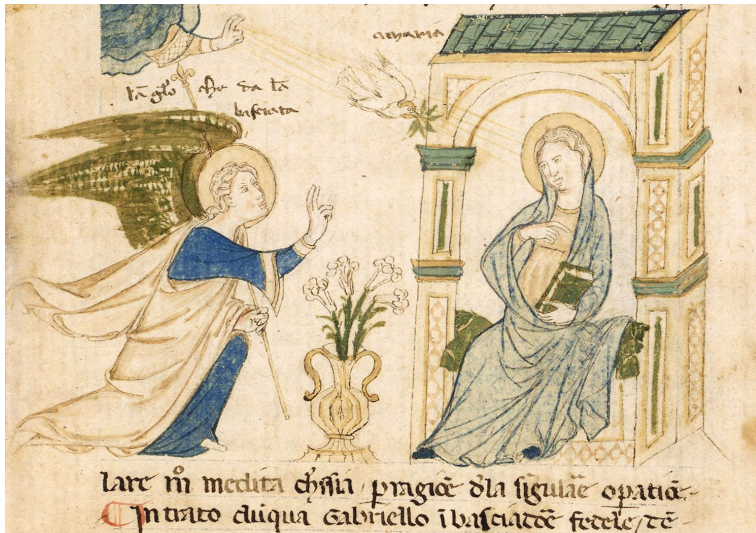 amaria
lā gło che da lā
basciata
lare m̊ medita chssia pragiōe dla sigulaē opatiōe.
In trato duqua Gabriello ībasciatōe fedele, tē-